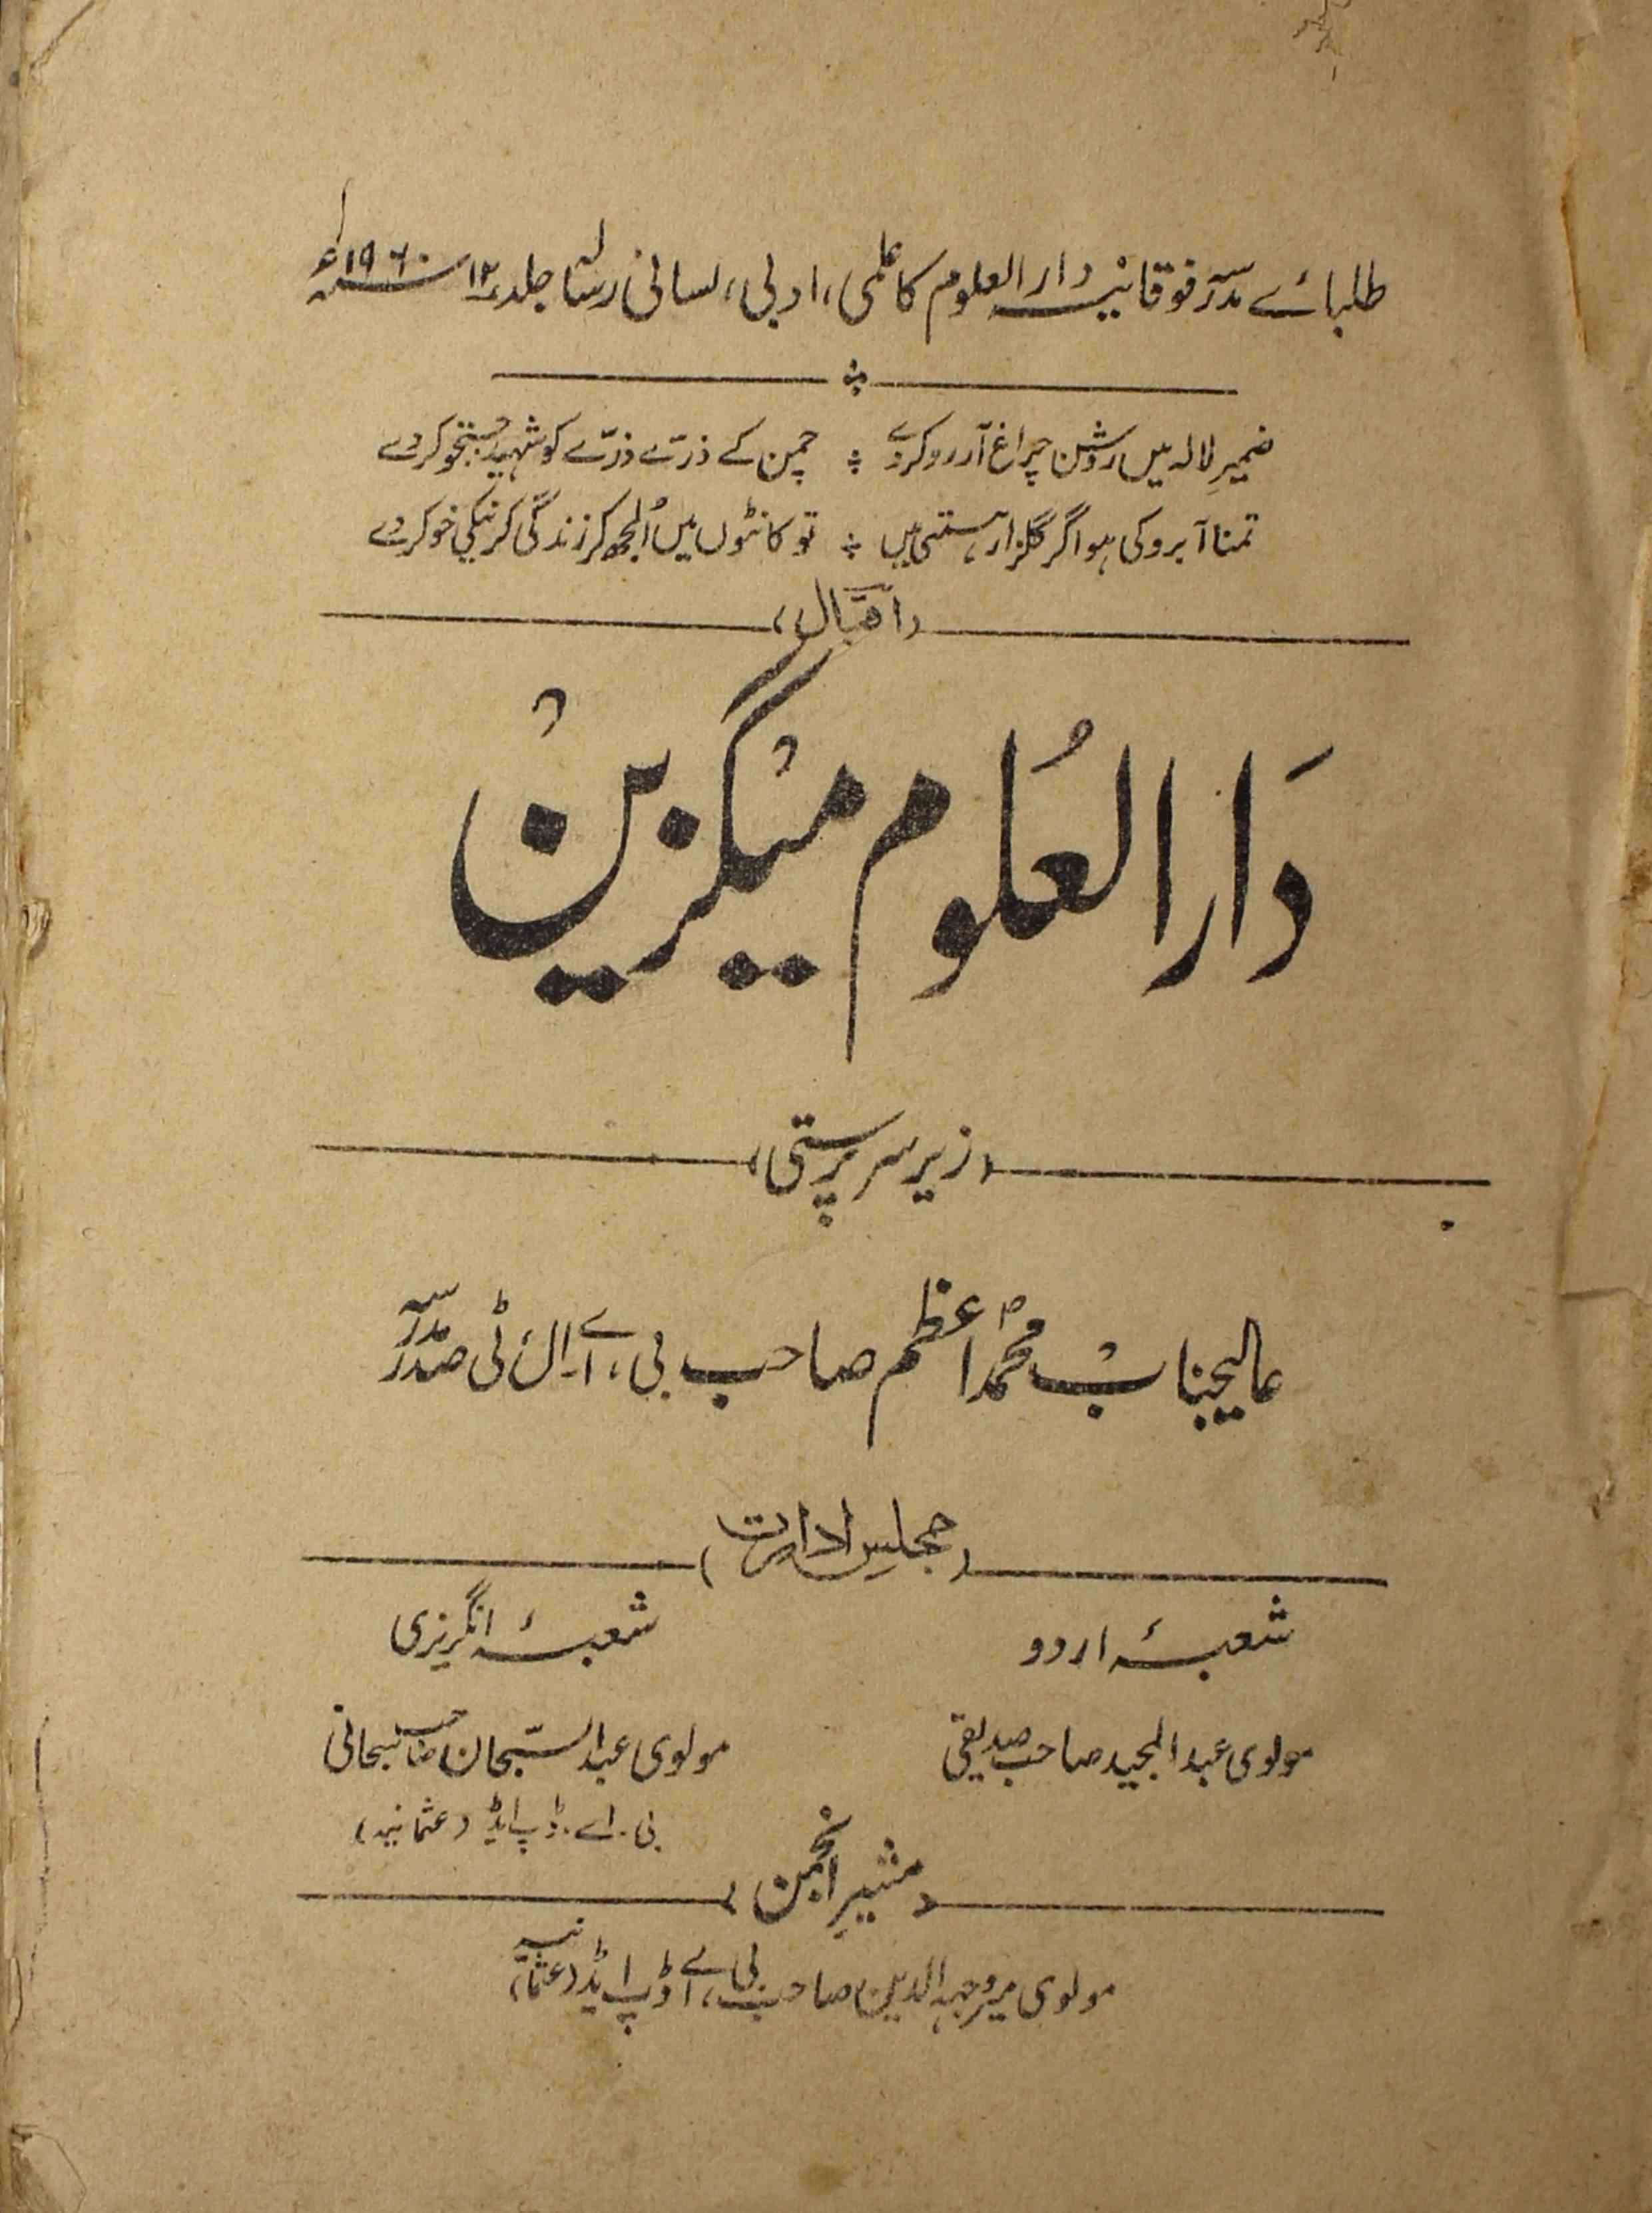 طلبائے مدرسہ فوقانیہ دارالعلوم کا علمی، ادبی، لسانی رسالہ جلد ۱۲ سنہ ۱۹۶۰ء
ضمیرِ لالہ میں روشن چراغ آرزو کردے ؞ چمن کے ذرّے ذرّے کو شہید جستجو کردے
تمنا آبرو کی ہو اگر گلزار ہستی میں ؞ تو کانٹوں میں اُلجھ کر زندگی کرنیکی خو کردے
(اقبال)
دَارالعُلوم میگزین
(زیر سرپرستی)
عالیجناب محمد اعظم صاحب بی، اے۔ ال ٹی صدر مدرسہ
(مجلسِ ادارت)
شعبۂ اردو
شعبۂ انگریزی
مولوی عبدالمجید صاحب صدیقی
مولوی عبدالسّبحان صاحب سبحانی
بی۔ اے۔ ڈپ ایڈ (عثمانیہ)
(مشیرِ انجمن)
مولوی میر وجہہ الدین صاحب بی، اے ڈپ ایڈ (عثمانیہ)